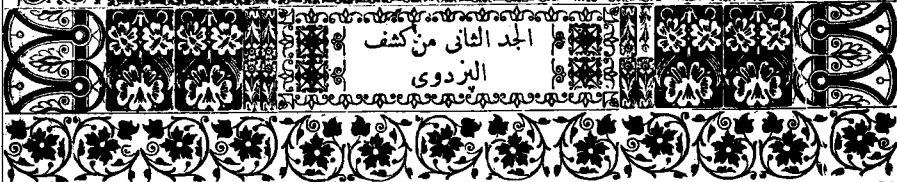 الجلد الثانى من كشف
البزدوى